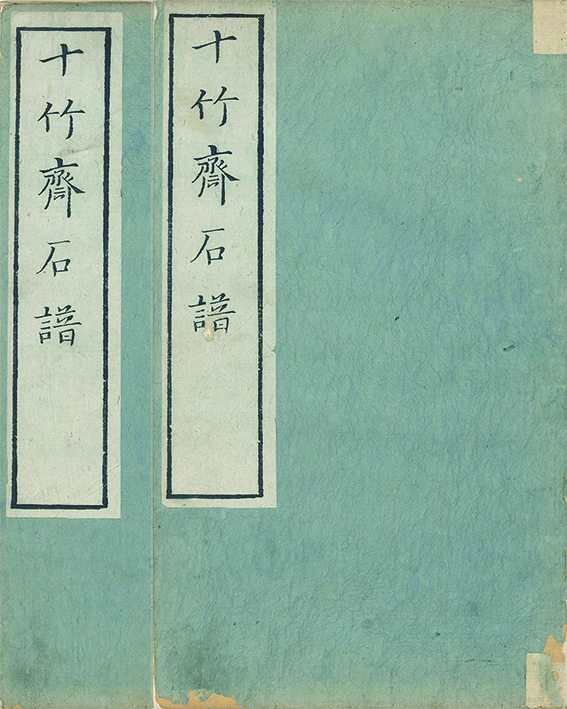 十竹齋石譜
十竹齋石譜